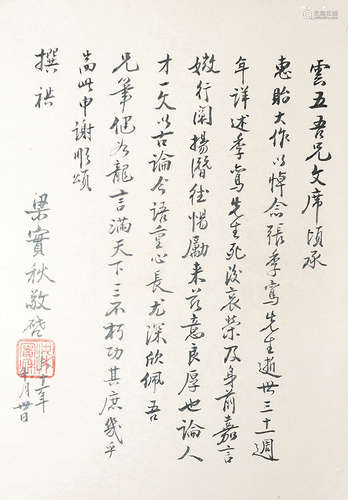 雲五吾兄文席頃承
惠貽大作以悼念張季鸞先生逝世三十一週
年詳述季鸞先生死後哀榮及身前嘉言
嫩行闡揚潛德惕勵来茲意良厚也論人
才一文以古論今語重心長尤深欣佩吾
兄筆健如龍言滿天下三不朽功其庶幾乎
耑此申謝順頌
撰祺
梁實秋敬啓
年 月廿日